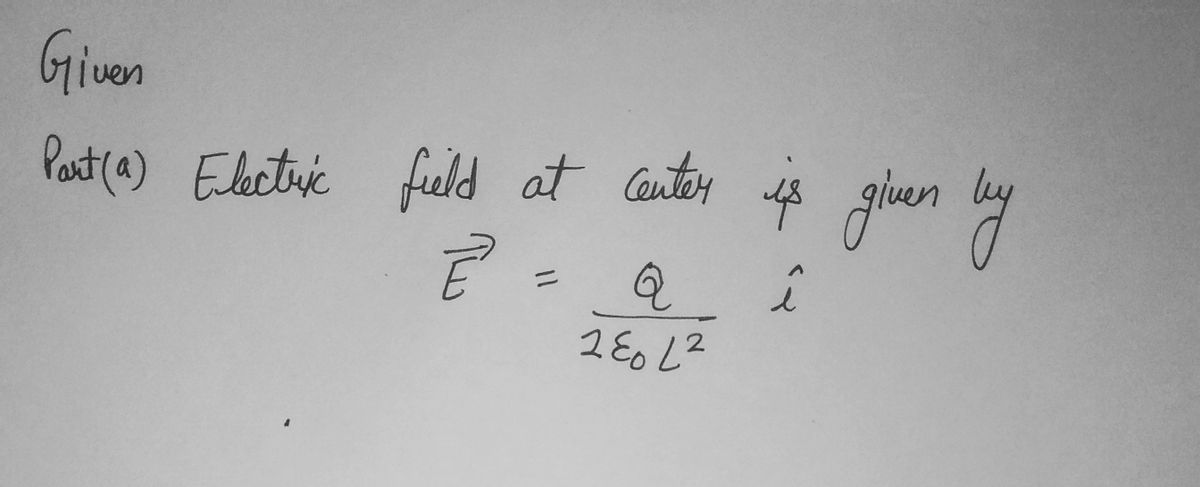 Given
Part(a) Electric field at center is given by
E⃗ = Q / 2ε₀L² î